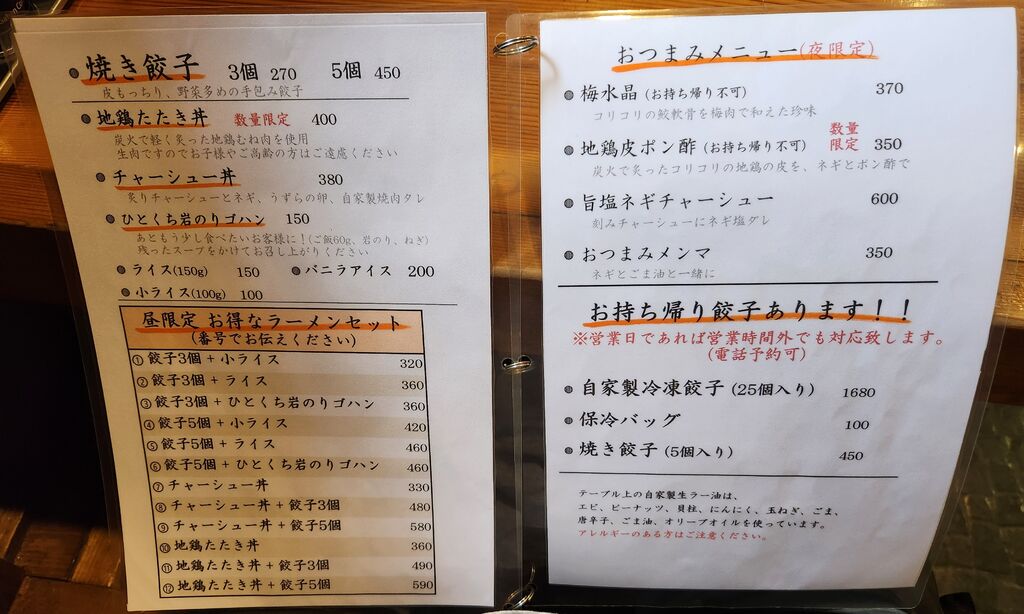 焼き餃子 3個 270 5個 450
皮もっちり、野菜多めの手包み餃子
地鶏たたき丼 数量限定 400
炭火で軽く炙った地鶏むね肉を使用
生肉ですのでお子様やご高齢の方はご遠慮ください
チャーシュー丼 380
炙りチャーシューとネギ、うずらの卵、自家製焼肉タレ
ひとくち岩のりゴハン 150
あともう少し食べたいお客様に！(ご飯60g、岩のり、ねぎ)
残ったスープをかけてお召し上がりください
ライス(150g) 150 バニラアイス 200
小ライス(100g) 100
昼限定 お得なラーメンセット
(番号でお伝えください)
① 餃子3個 + 小ライス 320
② 餃子3個 + ライス 360
③ 餃子3個 + ひとくち岩のりゴハン 360
④ 餃子5個 + 小ライス 420
⑤ 餃子5個 + ライス 460
⑥ 餃子5個 + ひとくち岩のりゴハン 460
⑦ チャーシュー丼 330
⑧ チャーシュー丼 + 餃子3個 480
⑨ チャーシュー丼 + 餃子5個 580
⑩ 地鶏たたき丼 360
⑪ 地鶏たたき丼 + 餃子3個 490
⑫ 地鶏たたき丼 + 餃子5個 590
おつまみメニュー(夜限定)
梅水晶 (お持ち帰り不可) 370
コリコリの鮫軟骨を梅肉で和えた珍味
地鶏皮ポン酢 (お持ち帰り不可) 数量限定 350
炭火で炙ったコリコリの地鶏の皮を、ネギとポン酢で
旨塩ネギチャーシュー 600
刻みチャーシューにネギ塩ダレ
おつまみメンマ 350
ネギとごま油と一緒に
お持ち帰り餃子あります！！
※営業日であれば営業時間外でも対応致します。
(電話予約可)
自家製冷凍餃子 (25個入り) 1680
保冷バッグ 100
焼き餃子 (5個入り) 450
テーブル上の自家製生ラー油は、
エビ、ピーナッツ、貝柱、にんにく、玉ねぎ、ごま、
唐辛子、ごま油、オリーブオイルを使っています。
アレルギーのある方はご注意ください。